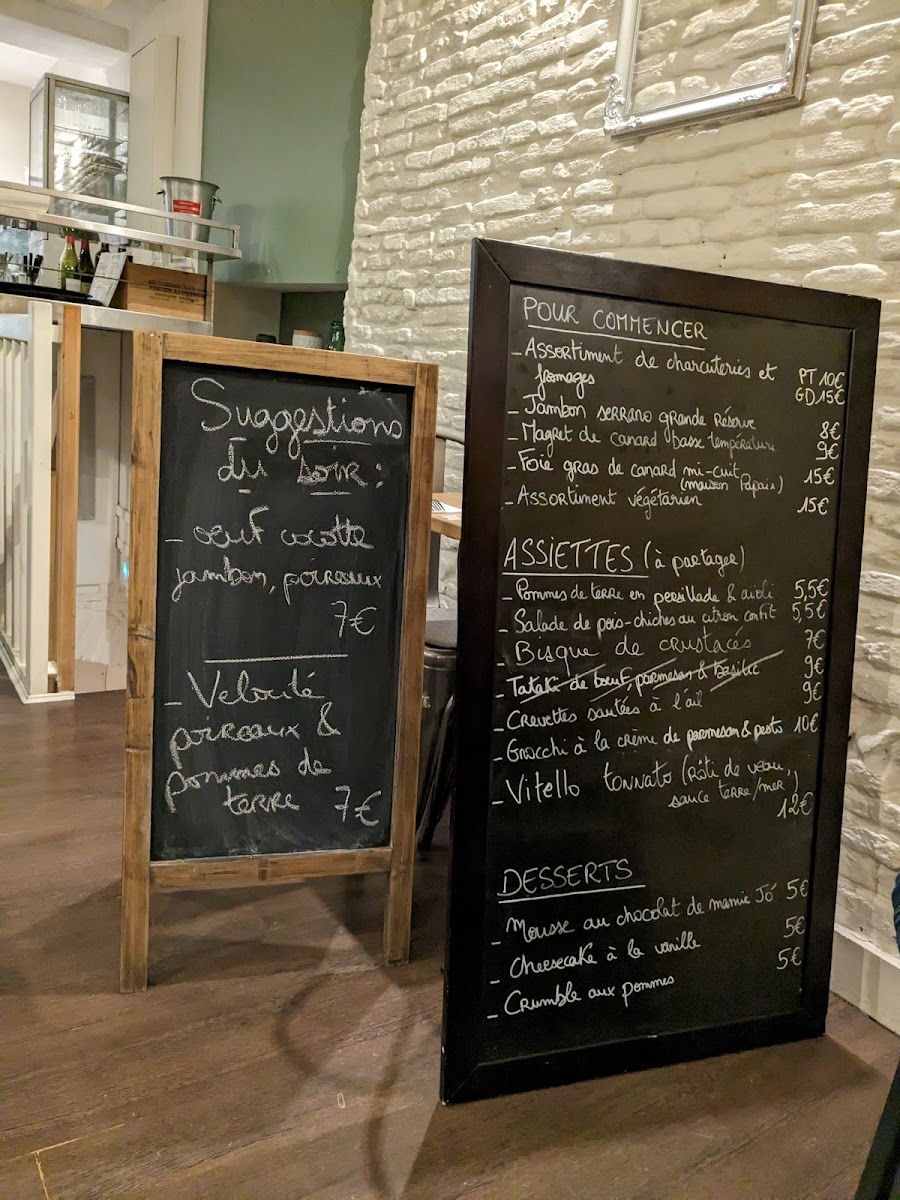 Suggestions
du soir :
- oeuf cocotte
jambon, poireaux
7€
- Velouté
poireaux &
pommes de
terre 7€
POUR COMMENCER
- Assortiment de charcuteries et
fromages PT 10€
GD 15€
- Jambon serrano grande réserve 8€
- Magret de canard basse température 9€
- Foie gras de canard mi-cuit 15€
(maison Papaix)
- Assortiment végétarien 15€
ASSIETTES (à partager)
- Pommes de terre en persillade & aïoli 5,5€
- Salade de pois-chiches au citron confit 5,5€
- Bisque de crustacés 7€
- Tataki de bœuf, parmesan & basilic 9€
- Crevettes sautées à l'ail 9€
- Gnocchi à la crème de parmesan & pesto 10€
- Vitello tonnato (rôti de veau,
sauce terre/mer)
12€
DESSERTS
- Mousse au chocolat de mamie Jó 5€
- Cheesecake à la vanille 5€
- Crumble aux pommes 5€